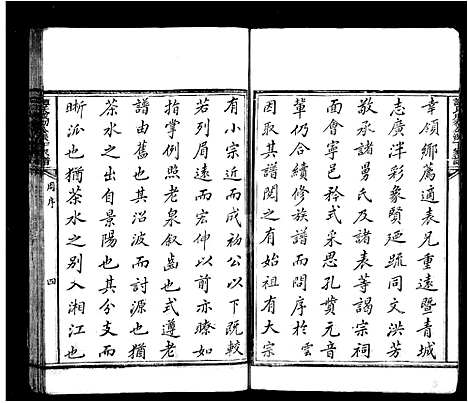 幸領鄉薦適表兄重遠暨青城
志廣泮彩象賢廼疏同文洪芳
敬承諸舅氏及諸表等謁宗祠
面會寧邑矜式采思孔賁元音
輩仍合續修族譜而問序於雲
因取其譜閱之有始祖有大宗
有小宗近而成初公以下既較
若列眉遠而宏仲以前亦瞭如
指掌例照老泉叙齒也式遵老
譜由舊也其沿波而討源也猶
茶水之出自景陽也其分支而
晰派也猶茶水之別入湘江也
周序
四